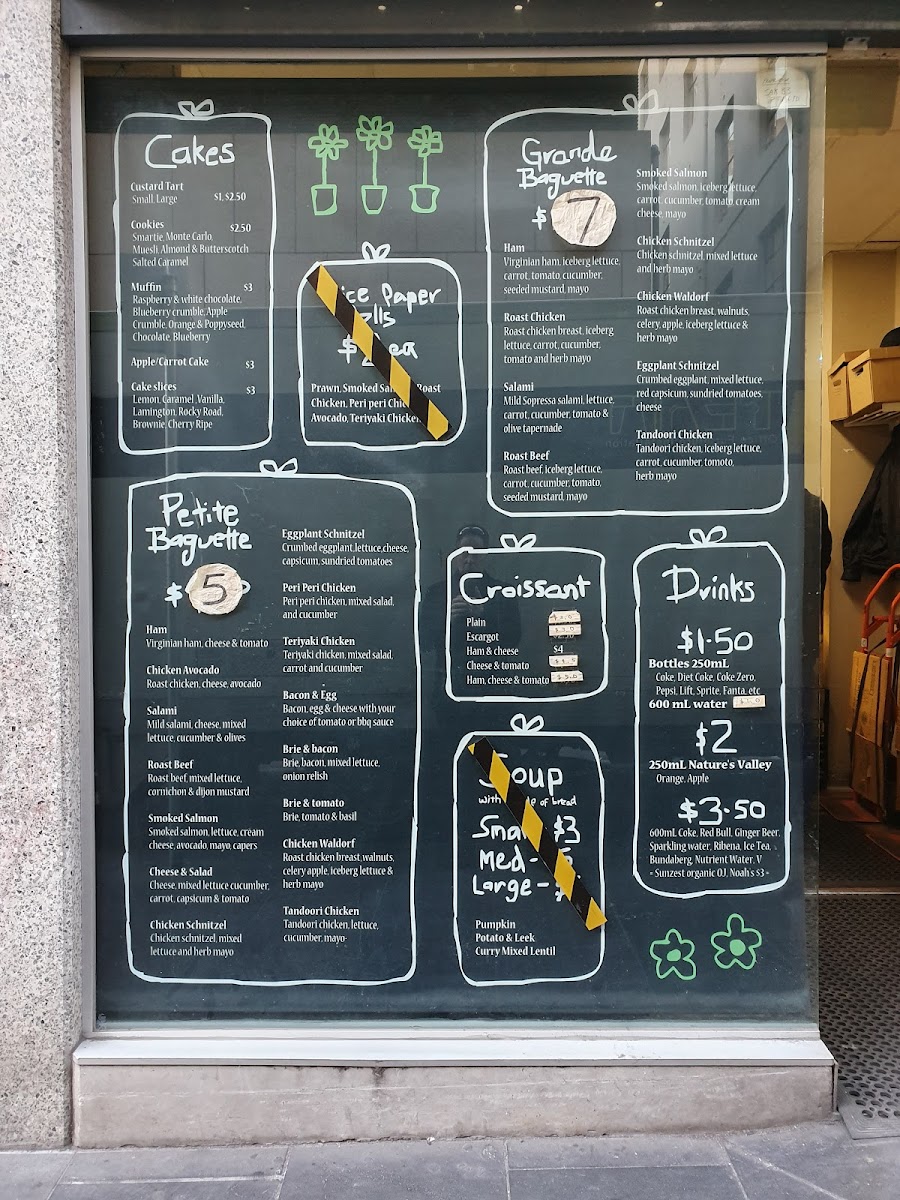 Cakes
Custard Tart
Small, Large $1, $2.50
Cookies $2.50
Smartie, Monte Carlo
Muesli, Almond & Butterscotch
Salted Caramel
Muffin $3
Raspberry & white chocolate,
Blueberry crumble, Apple
Crumble, Orange & Poppyseed,
Chocolate, Blueberry
Apple/Carrot Cake $3
Cake slices $3
Lemon, Caramel, Vanilla,
Lamington, Rocky Road,
Brownie, Cherry Ripe
Paper
$ ea
Prawn, Smoked Roast
Chicken, Peri peri
Avocado, Teriyaki Chicken
Grande
Baguette
$ 7
Ham
Virginian ham, iceberg lettuce,
carrot, tomato, cucumber,
seeded mustard, mayo
Roast Chicken
Roast chicken breast, iceberg
lettuce, carrot, cucumber,
tomato and herb mayo
Salami
Mild Sopressa salami, lettuce,
carrot, cucumber, tomato &
olive tapernade
Roast Beef
Roast beef, iceberg lettuce,
carrot, cucumber, tomato,
seeded mustard, mayo
Smoked Salmon
Smoked salmon, iceberg lettuce,
carrot, cucumber, tomato, cream
cheese, mayo
Chicken Schnitzel
Chicken schnitzel, mixed lettuce
and herb mayo
Chicken Waldorf
Roast chicken breast, walnuts,
celery, apple, iceberg lettuce &
herb mayo
Eggplant Schnitzel
Crumbed eggplant, mixed lettuce,
red capsicum, sundried tomatoes,
cheese
Tandoori Chicken
Tandoori chicken, iceberg lettuce,
carrot, cucumber, tomoto,
herb mayo
Petite
Baguette
$ 5
Ham
Virginian ham, cheese & tomato
Chicken Avocado
Roast chicken, cheese, avocado
Salami
Mild salami, cheese, mixed
lettuce, cucumber & olives
Roast Beef
Roast beef, mixed lettuce,
cornichon & dijon mustard
Smoked Salmon
Smoked salmon, lettuce, cream
cheese, avocado, mayo, capers
Cheese & Salad
Cheese, mixed lettuce cucumber,
carrot, capsicum & tomato
Chicken Schnitzel
Chicken schnitzel, mixed
lettuce and herb mayo
Eggplant Schnitzel
Crumbed eggplant,lettuce,cheese,
capsicum, sundried tomatoes
Peri Peri Chicken
Peri peri chicken, mixed salad,
and cucumber
Teriyaki Chicken
Teriyaki chicken, mixed salad,
carrot and cucumber
Bacon & Egg
Bacon, egg & cheese with your
choice of tomato or bbq sauce
Brie & bacon
Brie, bacon, mixed lettuce,
onion relish
Brie & tomato
Brie, tomato & basil
Chicken Waldorf
Roast chicken breast, walnuts,
celery apple, iceberg lettuce &
herb mayo
Tandoori Chicken
Tandoori chicken, lettuce,
cucumber, mayo
Croissant
Plain
Escargot
Ham & cheese $4
Cheese & tomato
Ham, cheese & tomato
Soup
with of bread
$3
Med -
Large -
Pumpkin
Potato & Leek
Curry Mixed Lentil
Drinks
$1.50
Bottles 250mL
Coke, Diet Coke, Coke Zero,
Pepsi, Lift, Sprite, Fanta, etc
600 mL water
$2
250mL Nature's Valley
Orange, Apple
$3.50
600mL Coke, Red Bull, Ginger Beer,
Sparkling water, Ribena, Ice Tea,
Bundaberg, Nutrient Water, V
- Sunzest organic OJ, Noah's $3 -